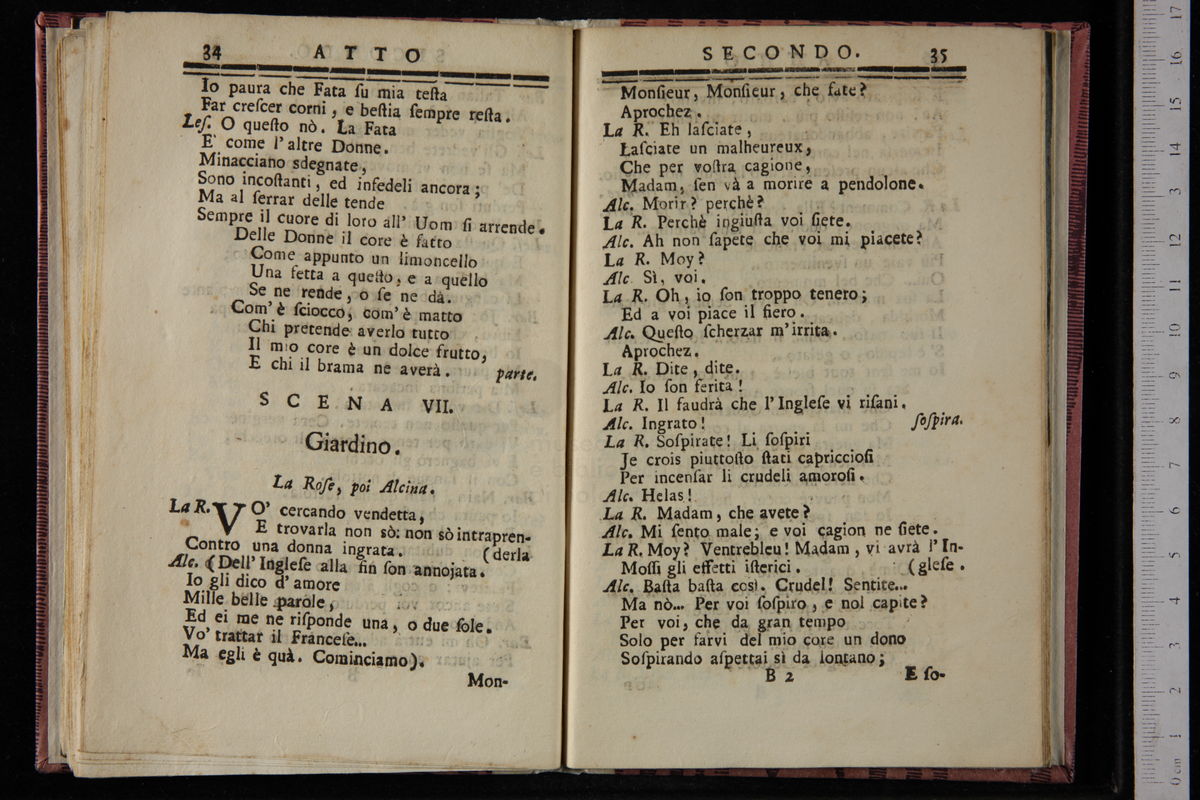 34 ATTO
Io paura che Fata ſu mia teſta
Far creſcer corni, e beſtia ſempre reſta.
Leſ. O queſto nò. La Fata
E' come l'altre Donne.
Minacciano sdegnate,
Sono incoſtanti, ed infedeli ancora;
Ma al ferrar delle tende
Sempre il cuore di loro all' Uom ſi arrende.
Delle Donne il core è fatto
Come appunto un limoncello
Una fetta a queſto, e a quello
Se ne rende, o ſe ne dà.
Com' è ſciocco, com' è matto
Chi pretende averlo tutto
Il mio core è un dolce frutto,
E chi il brama ne averà. parte.
SCENA VII.
Giardino.
La Roſe, poi Alcina.
La R. VO' cercando vendetta,
E trovarla non sò: non sò intrapren-
Contro una donna ingrata. (derla
Alc. (Dell' Ingleſe alla fin ſon annojata.
Io gli dico d' amore
Mille belle parole,
Ed ei me ne riſponde una, o due ſole.
Vo' trattar il Franceſe...
Ma egli è quà. Cominciamo).
Mon-
SECONDO. 35
Monſieur, Monſieur, che fate?
Aprochez.
La R. Eh laſciate,
Laſciate un malheureux,
Che per voſtra cagione,
Madam, ſen và a morire a pendolone.
Alc. Morir? perchè?
La R. Perchè ingiuſta voi ſiete.
Alc. Ah non ſapete che voi mi piacete?
La R. Moy?
Alc. Sì, voi.
La R. Oh, io ſon troppo tenero;
Ed a voi piace il fiero.
Alc. Queſto ſcherzar m'irrita.
Aprochez.
La R. Dite, dite.
Alc. Io ſon ferita!
La R. Il faudrà che l'Ingleſe vi riſani.
Alc. Ingrato! ſoſpira.
La R. Soſpirate! Li ſoſpiri
Je crois piuttoſto ſtati capriccioſi
Per incenſar li crudeli amoroſi.
Alc. Helas!
La R. Madam, che avete?
Alc. Mi ſento male; e voi cagion ne ſiete.
La R. Moy? Ventrebleu! Madam, vi avrà l' In-
Moſſi gli effetti iſterici. (gleſe.
Alc. Baſta baſta così. Crudel! Sentite...
Ma nò... Per voi ſoſpiro, e nol capite?
Per voi, che da gran tempo
Solo per farvi del mio core un dono
Soſpirando aſpettai sì da lontano;
B 2 E ſo-